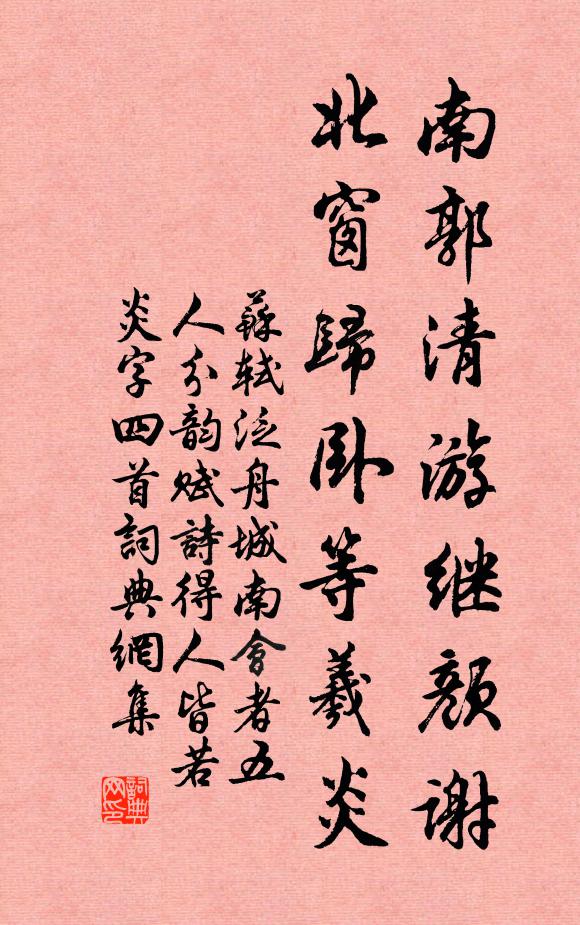 南郭清游继颜谢
北窗歸卧等羲炎
蘇軾泛舟城南會者五
人分韵賦詩得人皆若
炎字四首詞典網集
詞典网印